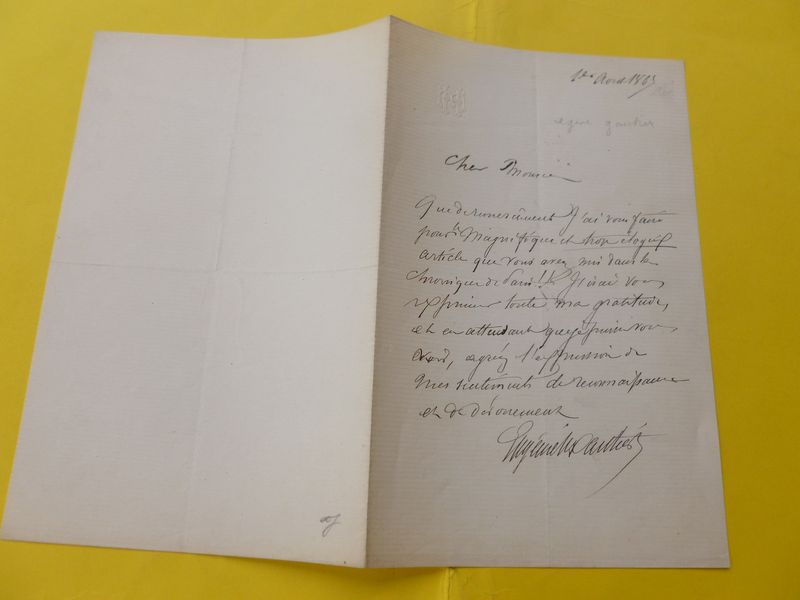 1er Avril 1865
eugene gautier
Cher Monsieur
Que de remerciements j'ai à vous faire
pour le magnifique et trop élogieux
article que vous avez mis dans la
Chronique de Paris!! J'irai vous
exprimer toute ma gratitude,
et en attendant que je puisse vous
voir, agréez l'expression de
mes sentiments de reconnaissance
et de dévouement
Eugène Gautier